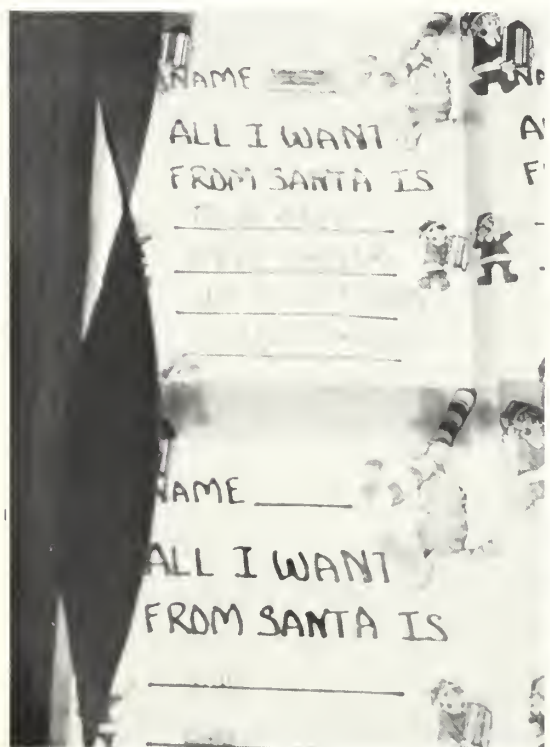 NAME
ALL I WANT
FROM SANTA IS
NAME
ALL I WANT
FROM SANTA IS